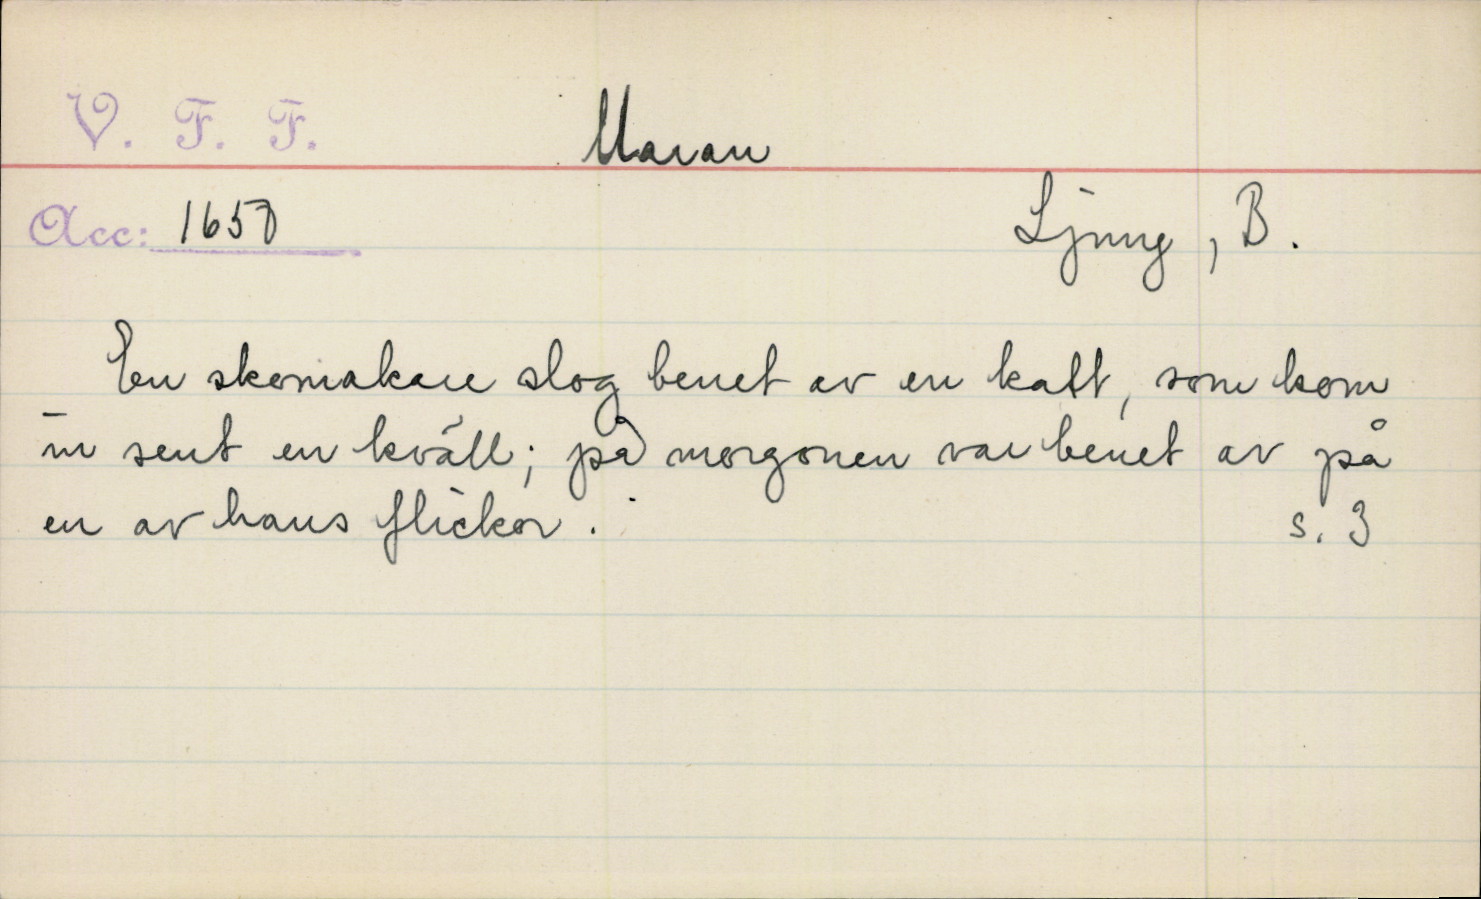 V. F. F.
Maran
Acc: 1658
Ljung, B.
En skomakare slog benet av en katt, som kom
in sent en kväll; på morgonen var benet av på
en av hans flickor.
s. 3